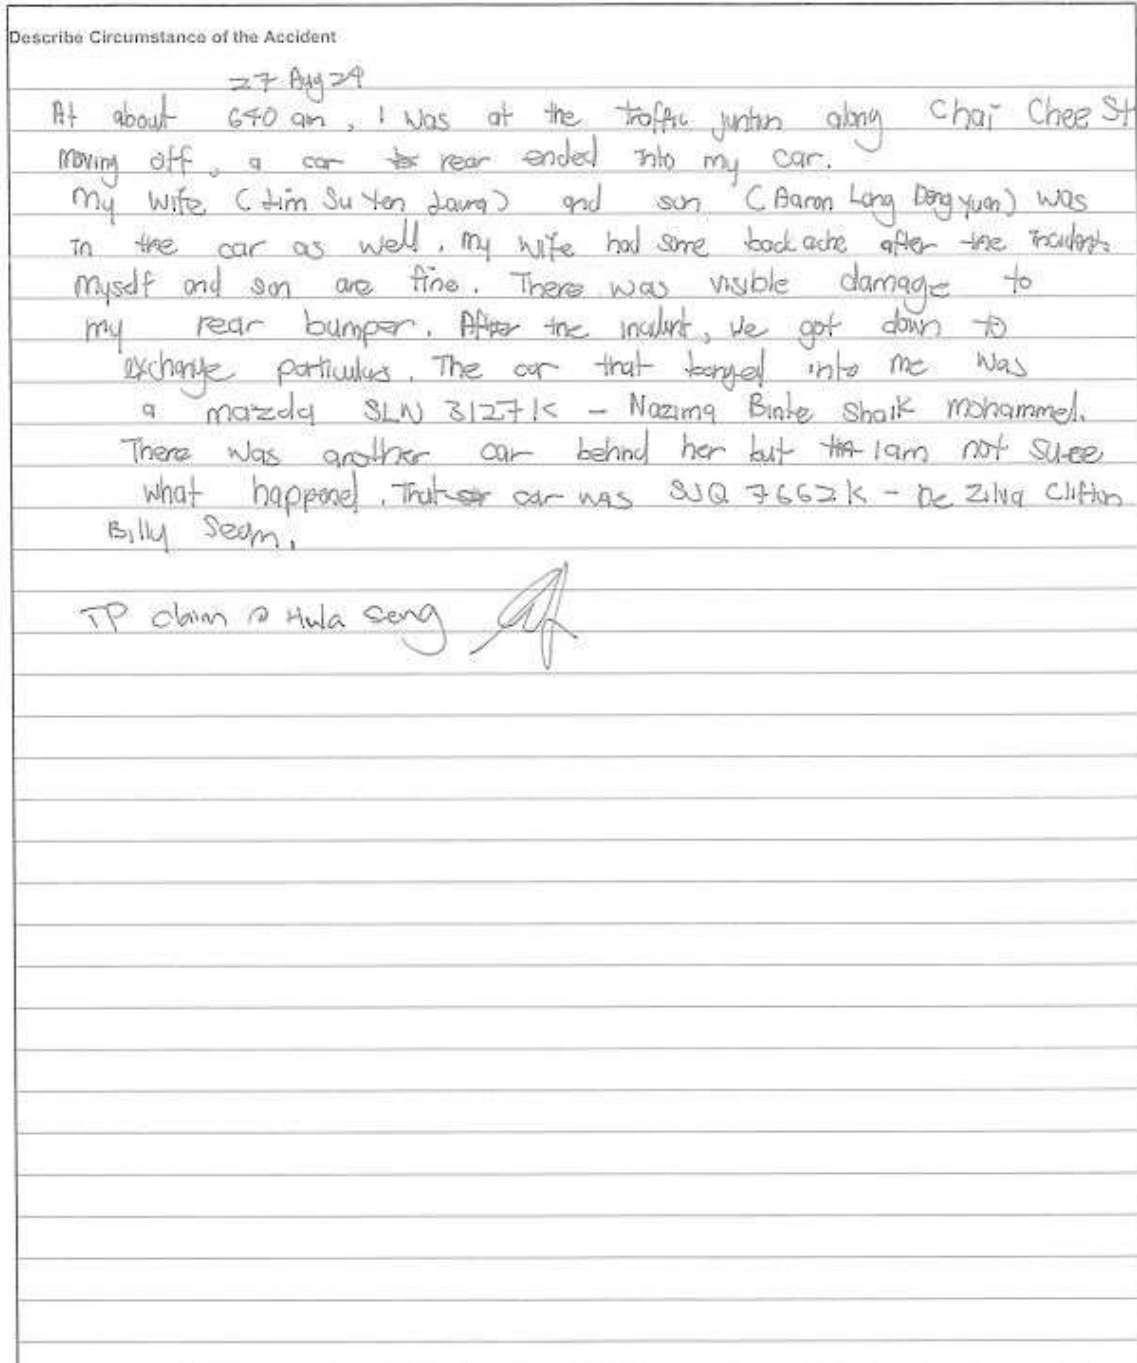 Describe Circumstance of the Accident
27 Aug 24
At about 640 am, I was at the traffic juntion along Chai Chee St
Moving off, a car rear ended into my car.
My wife (Lim Su Yen Laura) and son (Aaron Long Dong Yuan) was
in the car as well. My wife had some back ache after the incident.
Myself and son are fine. There was visible damage to
my rear bumper. After the incident, we got down to
exchange particulars. The car that banged into me was
a mazda SLN 3127K - Nazima Binte Shaik mohammed.
There was another car behind her but I am not suree
what happened. That car was SJQ 7662K - De Zilva Clifton
Billy Sean.
TP claim @ Hula Seng